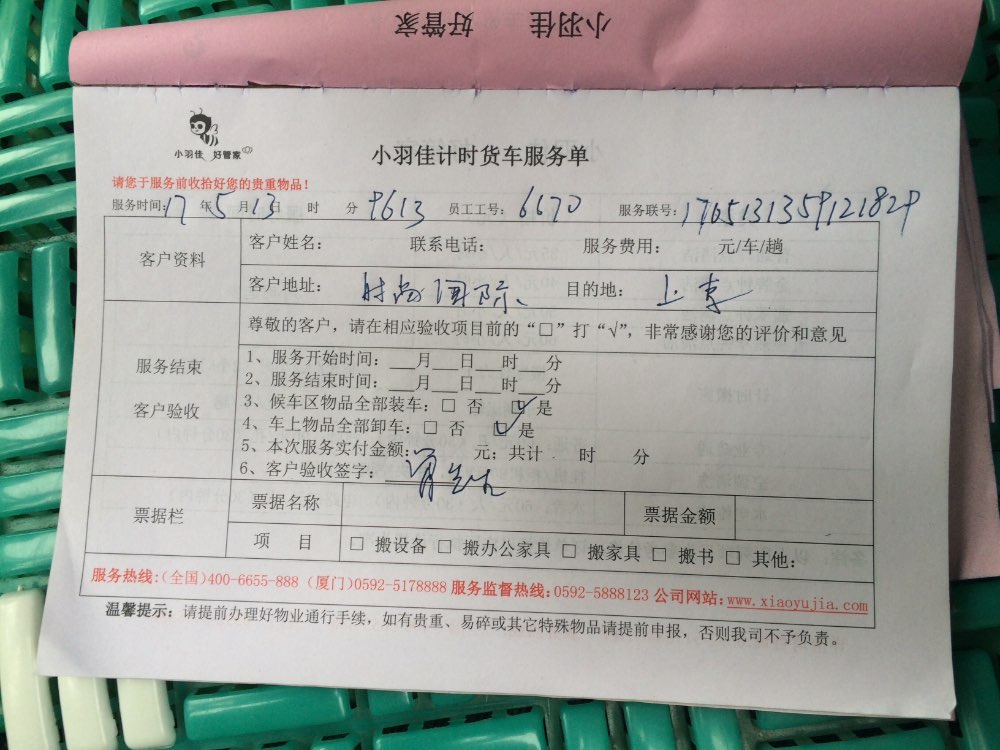 小羽佳 好管家
小羽佳 好管家
小羽佳计时货车服务单
请您于服务前收拾好您的贵重物品！
服务时间：17 年 5 月 13 日 时 分 9613 员工工号：6670 服务联号：1765131359121829
客户资料
客户姓名： 联系电话： 服务费用： 元/车/趟
客户地址： 时尚国际、 目的地： 上李
服务结束
客户验收
尊敬的客户，请在相应验收项目前的“□”打“√”，非常感谢您的评价和意见
1、服务开始时间：___月___日___时___分
2、服务结束时间：___月___日___时___分
3、候车区物品全部装车：□ 否 ☑ 是
4、车上物品全部卸车：□ 否 □ 是
5、本次服务实付金额： 元；共计 时 分
6、客户验收签字：
票据栏
票据名称 票据金额
项 目 □ 搬设备 □ 搬办公家具 □ 搬家具 □ 搬书 □ 其他：
服务热线：（全国）400-6655-888（厦门）0592-5178888 服务监督热线：0592-5888123 公司网站：www.xiaoyujia.com
温馨提示：请提前办理好物业通行手续，如有贵重、易碎或其它特殊物品请提前申报，否则我司不予负责。